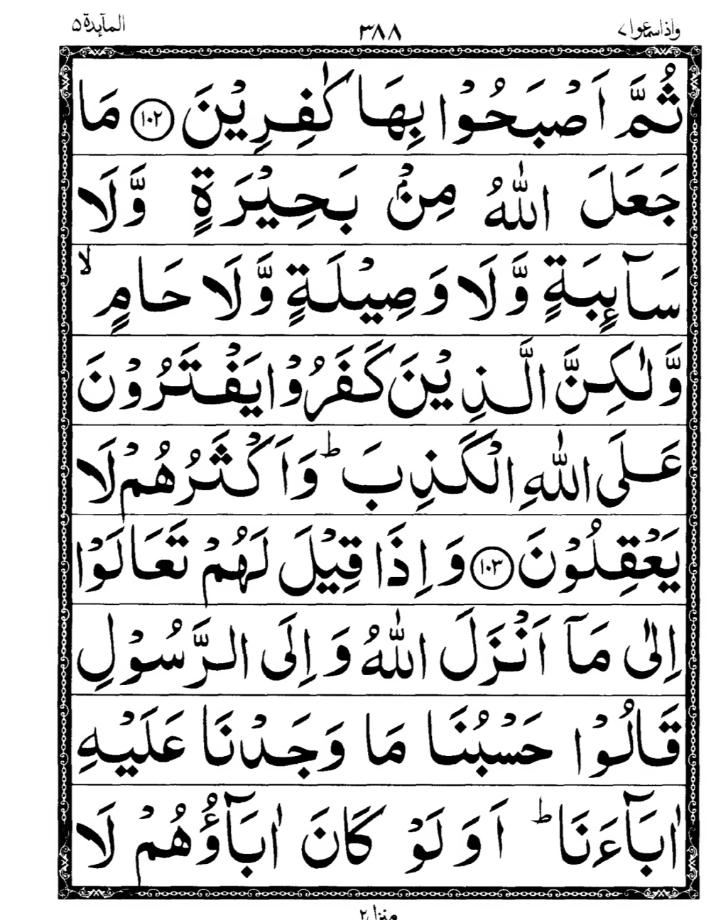 واذاسمعوا ٧ ٣٨٨ المآىدة ٥
ثُمَّ اَصْبَحُوْا بِهَا كٰفِرِيْنَ ١٠٢ مَا
جَعَلَ اللّٰهُ مِنْۢ بَحِيْرَةٍ وَّلَا
سَآىِٕبَةٍ وَّلَا وَصِيْلَةٍ وَّلَا حَامٍ ۙ
وَّلٰكِنَّ الَّذِيْنَ كَفَرُوْا يَفْتَرُوْنَ
عَلَى اللّٰهِ الْكَذِبَ ؕ وَاَكْثَرُهُمْ لَا
يَعْقِلُوْنَ ١٠٣ وَاِذَا قِيْلَ لَهُمْ تَعَالَوْا
اِلٰى مَاۤ اَنْزَلَ اللّٰهُ وَاِلَى الرَّسُوْلِ
قَالُوْا حَسْبُنَا مَا وَجَدْنَا عَلَيْهِ
اٰبَآءَنَا ؕ اَوَلَوْ كَانَ اٰبَآؤُهُمْ لَا
منزل ٢